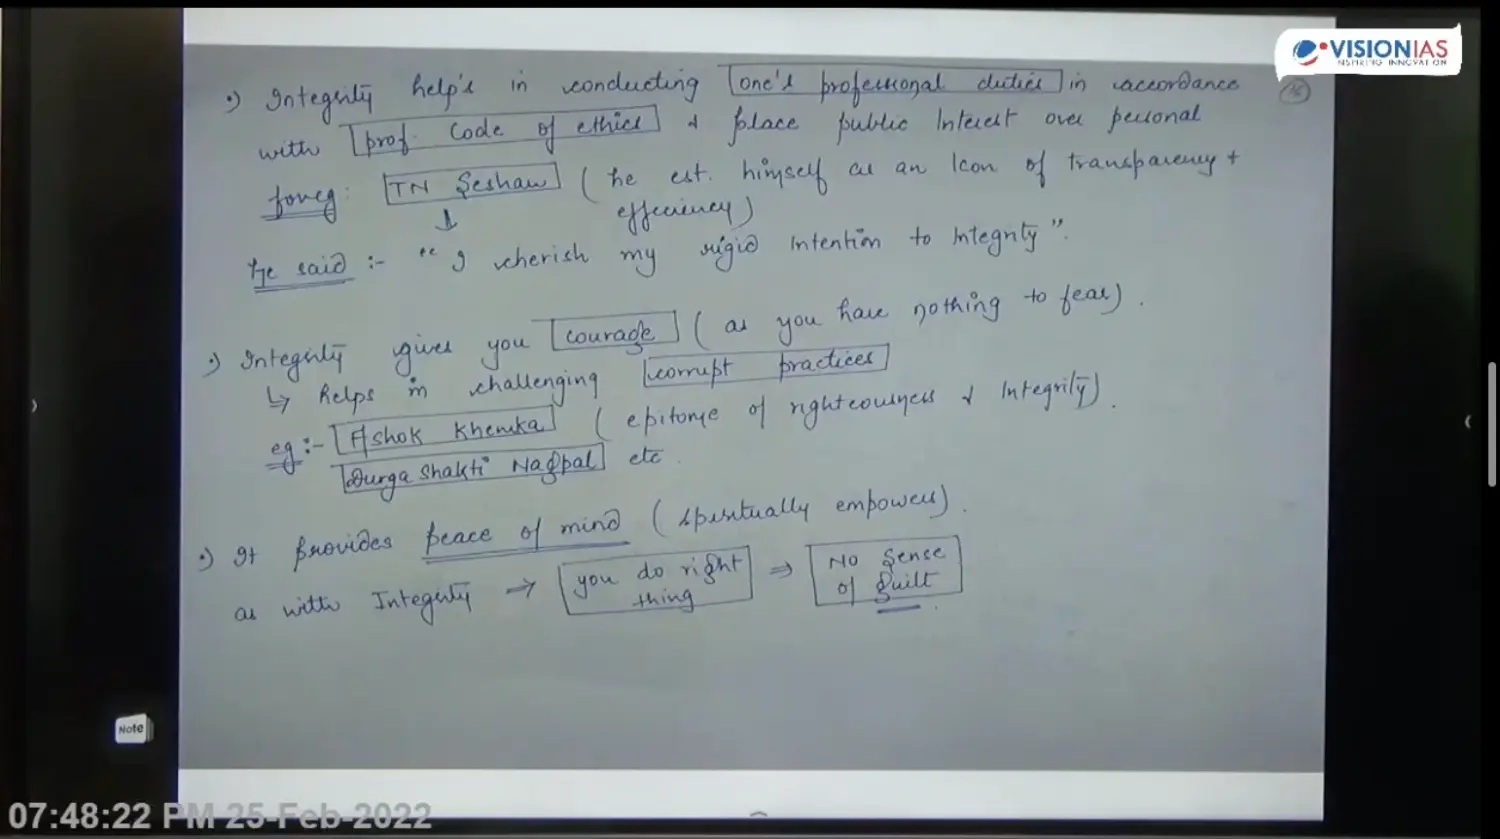 VISIONIAS
INSPIRING INNOVATION
•) Integrity help's in conducting one's professional duties in accordance
with prof. Code of ethics & place public Interest over personal
for eg: TN Seshan (he est. himself as an Icon of transparency +
efficiency)
↓
he said :- "I cherish my rigid intention to Integrity".
•) Integrity gives you courage (as you have nothing to fear).
↳ helps in challenging corrupt practices
eg:- Ashok Khemka (epitome of righteousness & Integrity).
Durga Shakti Nagpal etc.
•) It provides peace of mind (spiritually empowers).
as with Integrity → you do right thing ⇒ No Sense of guilt.
Note
07:48:22 PM 25-Feb-2022